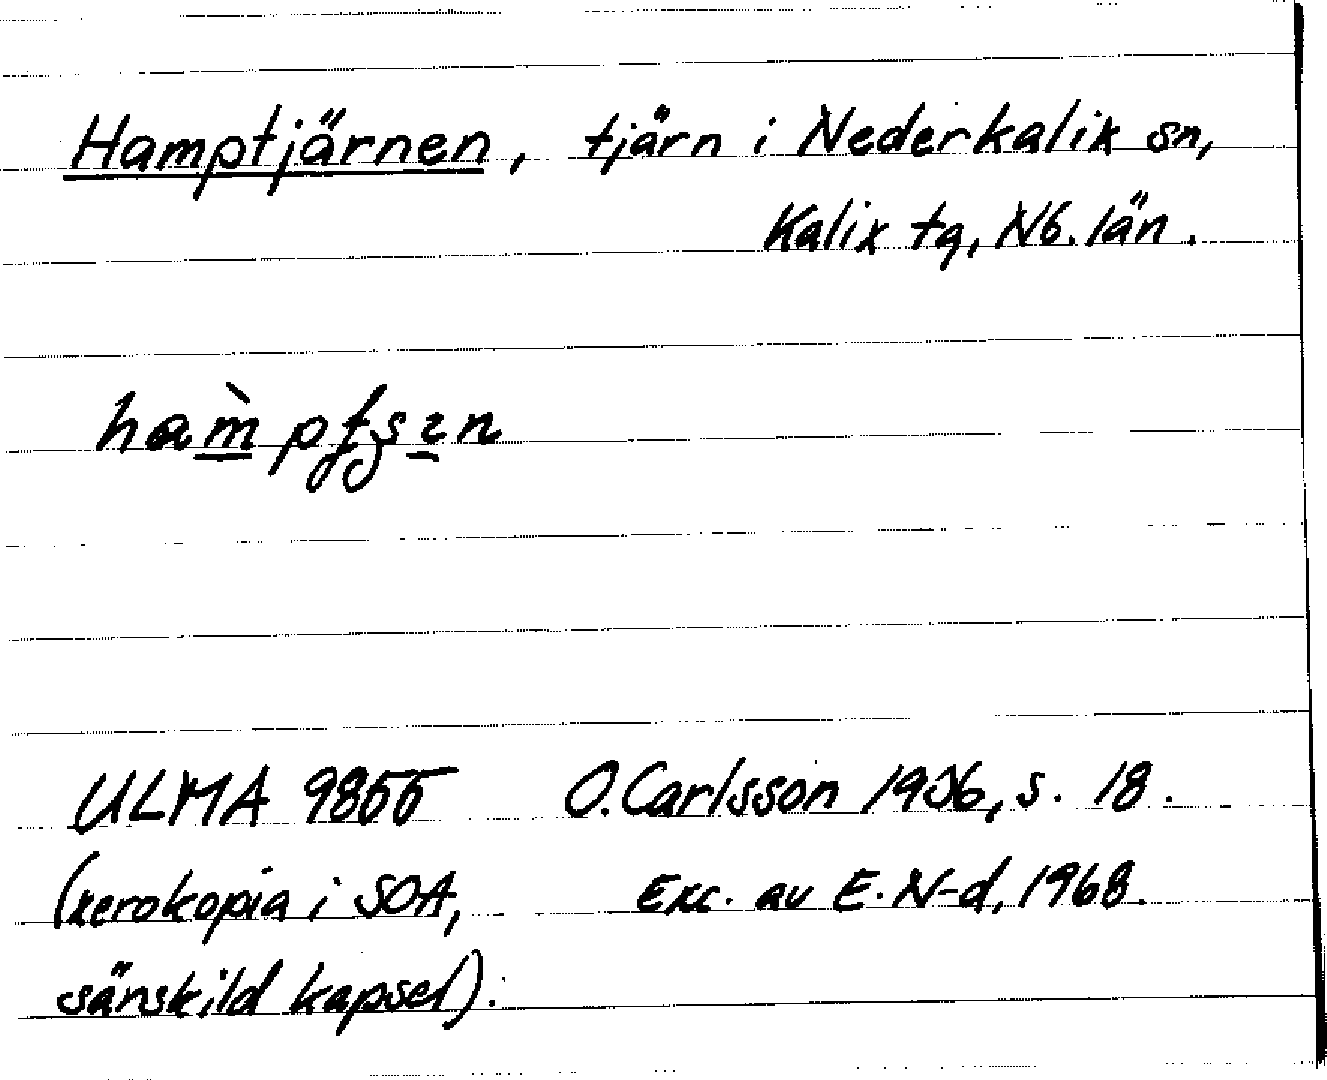 Hamptjärnen, tjärn i Nederkalix sn,
Kalix tg, Nb. län.
ULMA 9855 O. Carlsson 1936, s. 18.
(xerokopia i SOA, Exc. av E. N-d, 1968.
särskild kapsel).